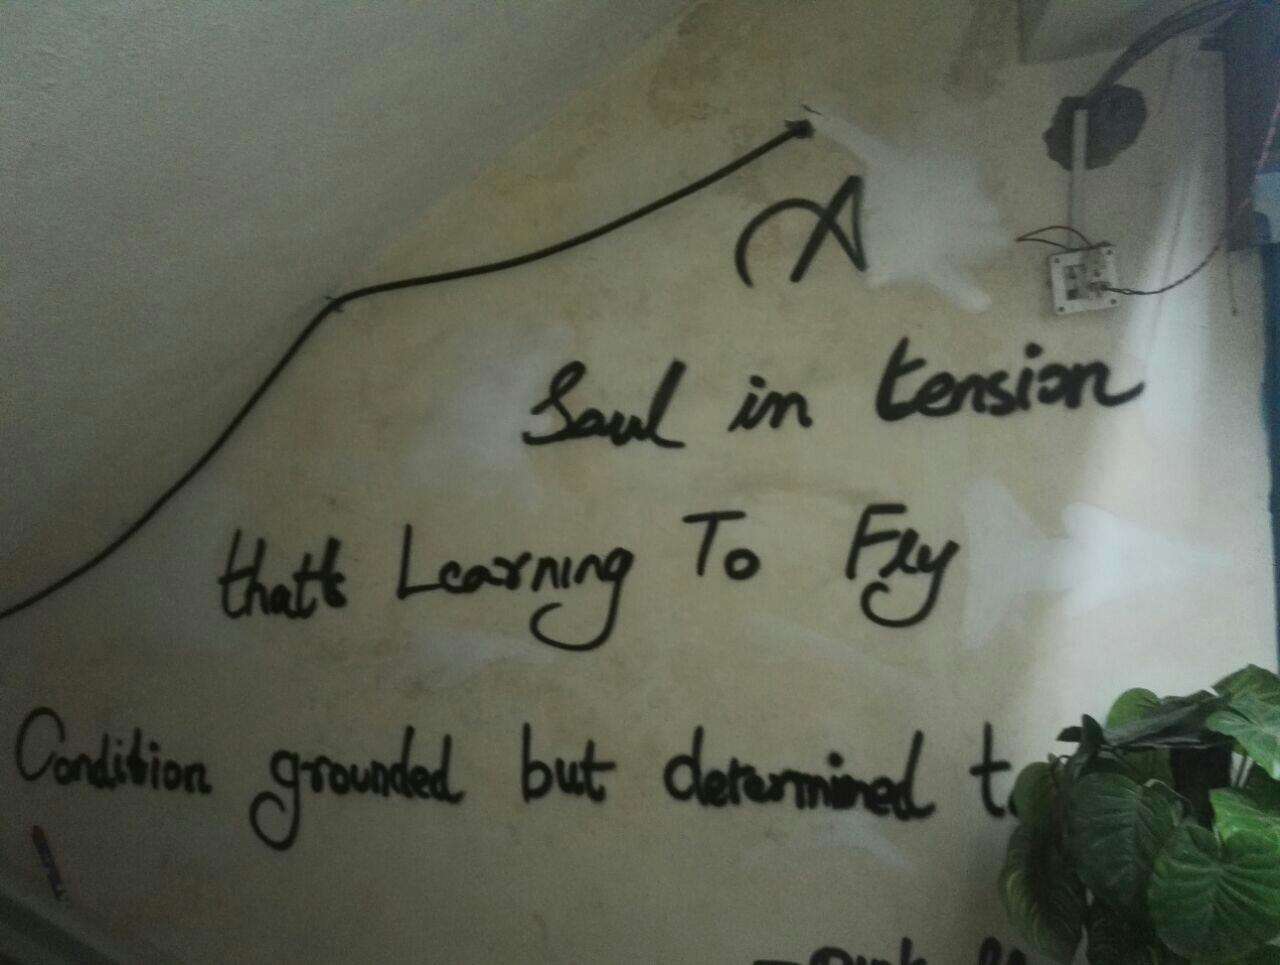 A
Soul in tension
that's Learning To Fly
Condition grounded but determined t